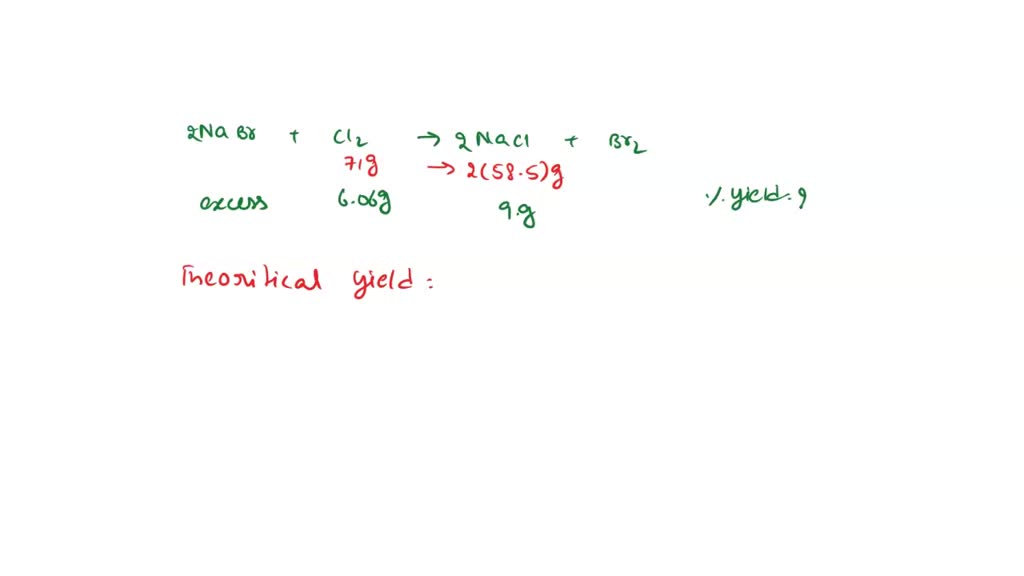 2NaBr + Cl2 → 2NaCl + Br2
71g → 2(58.5)g
excess 6.06g 9.g % yield.?
Theoritical yield: